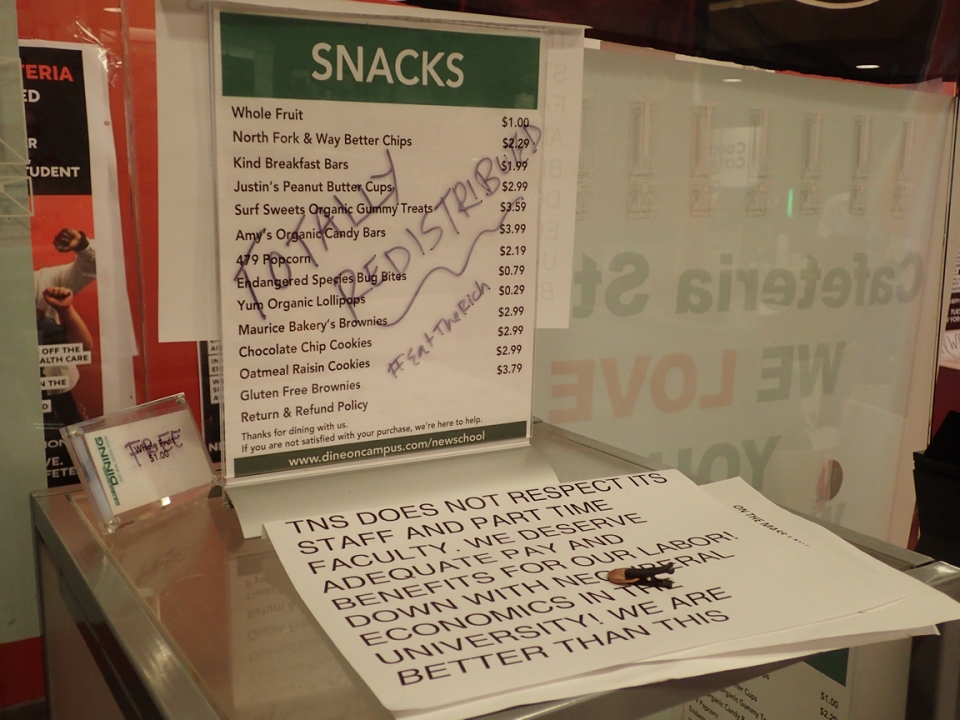 SNACKS
Whole Fruit $1.00
North Fork & Way Better Chips $2.29
Kind Breakfast Bars $1.99
Justin's Peanut Butter Cups $2.99
Surf Sweets Organic Gummy Treats $3.59
Amy's Organic Candy Bars $3.99
479 Popcorn $2.19
Endangered Species Bug Bites $0.79
Yum Organic Lollipops $0.29
Maurice Bakery's Brownies $2.99
Chocolate Chip Cookies $2.99
Oatmeal Raisin Cookies $2.99
Gluten Free Brownies $3.79
Return & Refund Policy
Thanks for dining with us.
If you are not satisfied with your purchase, we're here to help.
www.dineoncampus.com/newschool
TOTALLY
REDISTRIBUTED
#EatTheRich
TNS DOES NOT RESPECT ITS
STAFF AND PART TIME
FACULTY. WE DESERVE
ADEQUATE PAY AND
BENEFITS FOR OUR LABOR!
DOWN WITH
ECONOMICS IN
UNIVERSITY! WE ARE
BETTER THAN THIS
ON THE
Cafeteria St
WE LOVE
YOU
TERIA
ED
TUDENT
OFF THE
ALTH CARE
IN THE
DINING
$1.00
$1.00